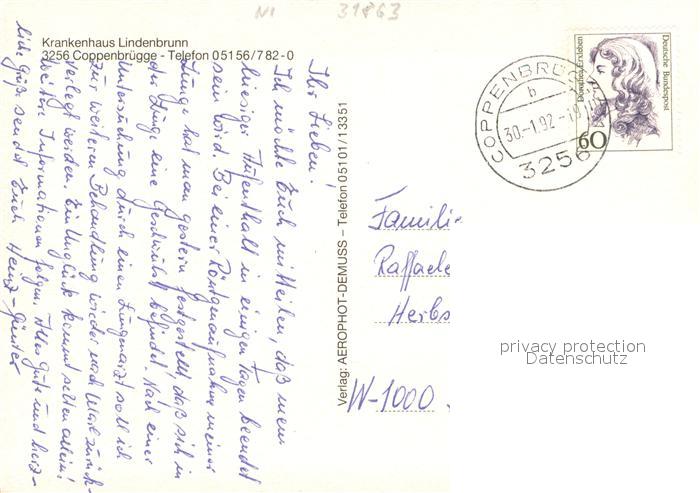 N1 31863
Krankenhaus Lindenbrunn
3256 Coppenbrügge - Telefon 05156/782-0
Ihr Lieben!
Ich möchte Euch mitteilen, daß mein
hiesiger Aufenthalt in einigen Tagen beendet
sein wird. Bei einer Röntgenaufnahme meiner
Lunge hat man gestern festgestellt, daß sich in
der Lunge eine Geschwulst befindet. Nach einer
Untersuchung durch einen Lungenarzt soll ich
zur weiteren Behandlung wieder nach zurück-
verlegt werden. Ein Unglück kommt selten allein!
Weitere Informationen folgen. Alles Gute und herz-
liche Grüße sendet Euch Heinz-Günter
Verlag: AEROPHOT-DEMUSS – Telefon 05101/13351
COPPENBRÜGGE
b
30.-1.92-19
3256
Dorothea Erxleben
Deutsche Bundespost
60
Familie
Raffaele
Herbs
W-1000
privacy protection
Datenschutz